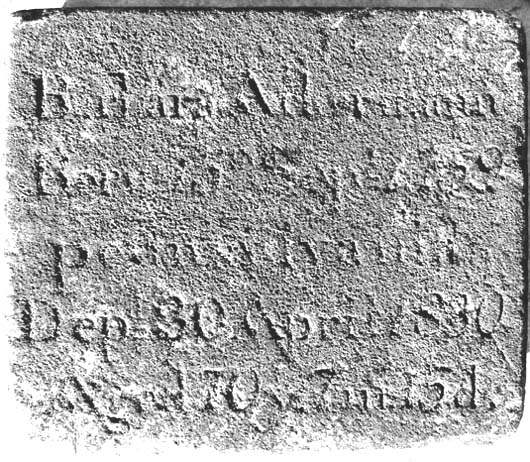 Barbara Ackermann
Born 15th Sept. 1759
pennsylvanih.
Dep. 30 April 1830
Aged 70 y. 7 m. 15 d.